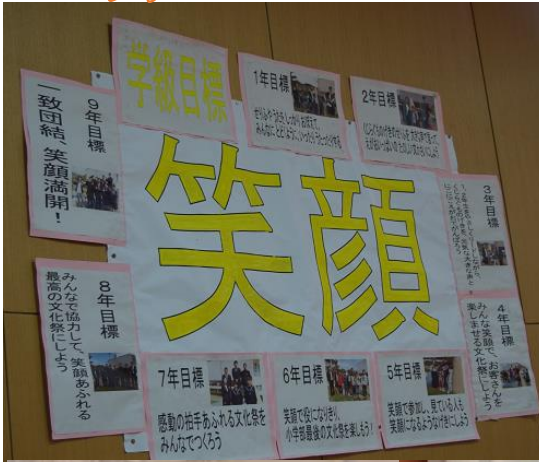 学級目標
笑顔
1年目標
せりふやうたをしっかりおぼえて、
みんなにとどくように
2年目標
3年目標
4年目標
みんな笑顔で、お客さんを
楽しませる文化祭にしよう
5年目標
笑顔で参加し、見ている人も
笑顔になるようなげきにしよう
6年目標
笑顔で役になりきり、
小学部最後の文化祭を楽しもう!
7年目標
感動の拍手あふれる文化祭を
みんなでつくろう
8年目標
みんなで協力して、笑顔あふれる
最高の文化祭にしよう
9年目標
一致団結、笑顔満開!